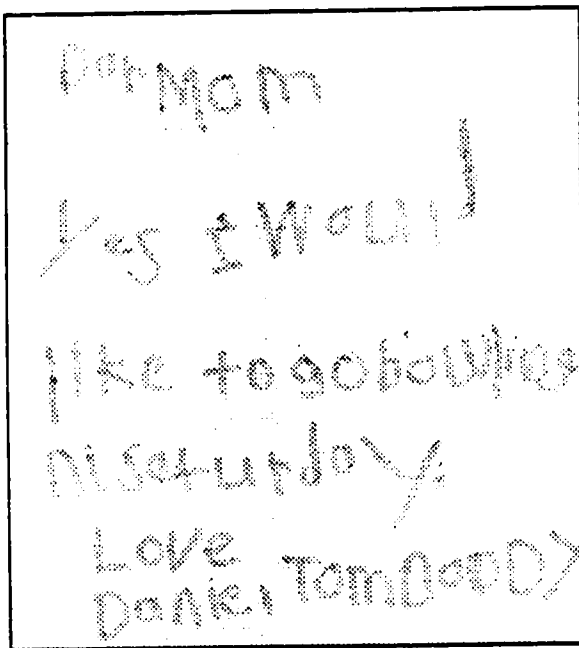 Dar MOM
Yes I Would
like to go bowling
ni Seturday.
Love
Daniel TOMDOODY